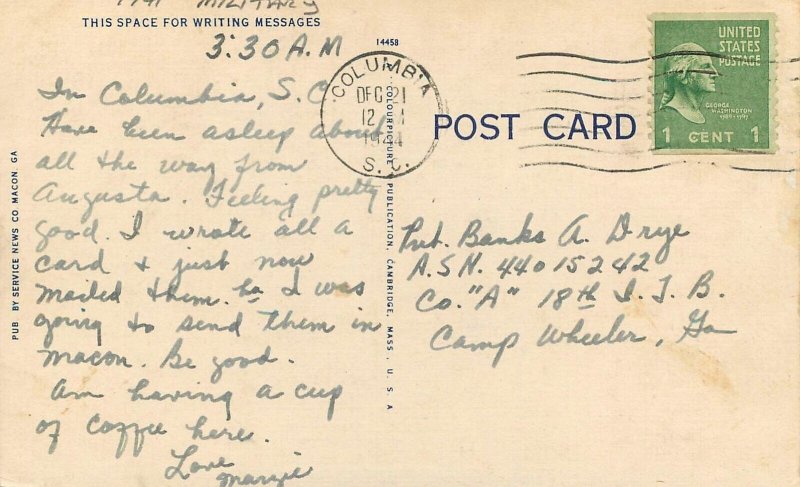 MILITARY
THIS SPACE FOR WRITING MESSAGES
3:30 A.M
In Columbia, S.C
Have been asleep about
all the way from
Augusta. Feeling pretty
good. I wrote all a
card & just now
mailed them. ha I was
going to send them in
Macon. Be good.
Am having a cup
of coffee here.
Love
Margie
PUB BY SERVICE NEWS CO MACON, GA
14458
COLOURPICTURE PUBLICATION, CAMBRIDGE, MASS., U.S.A
COLUMBIA
DEC 21
12
S. C.
POST CARD
UNITED
STATES
POSTAGE
GEORGE
WASHINGTON
1789-1797
1 CENT 1
Pvt. Banks A. Drye
A.S.N. 44015242
Co. "A" 18th I.T.B.
Camp Wheeler, Ga